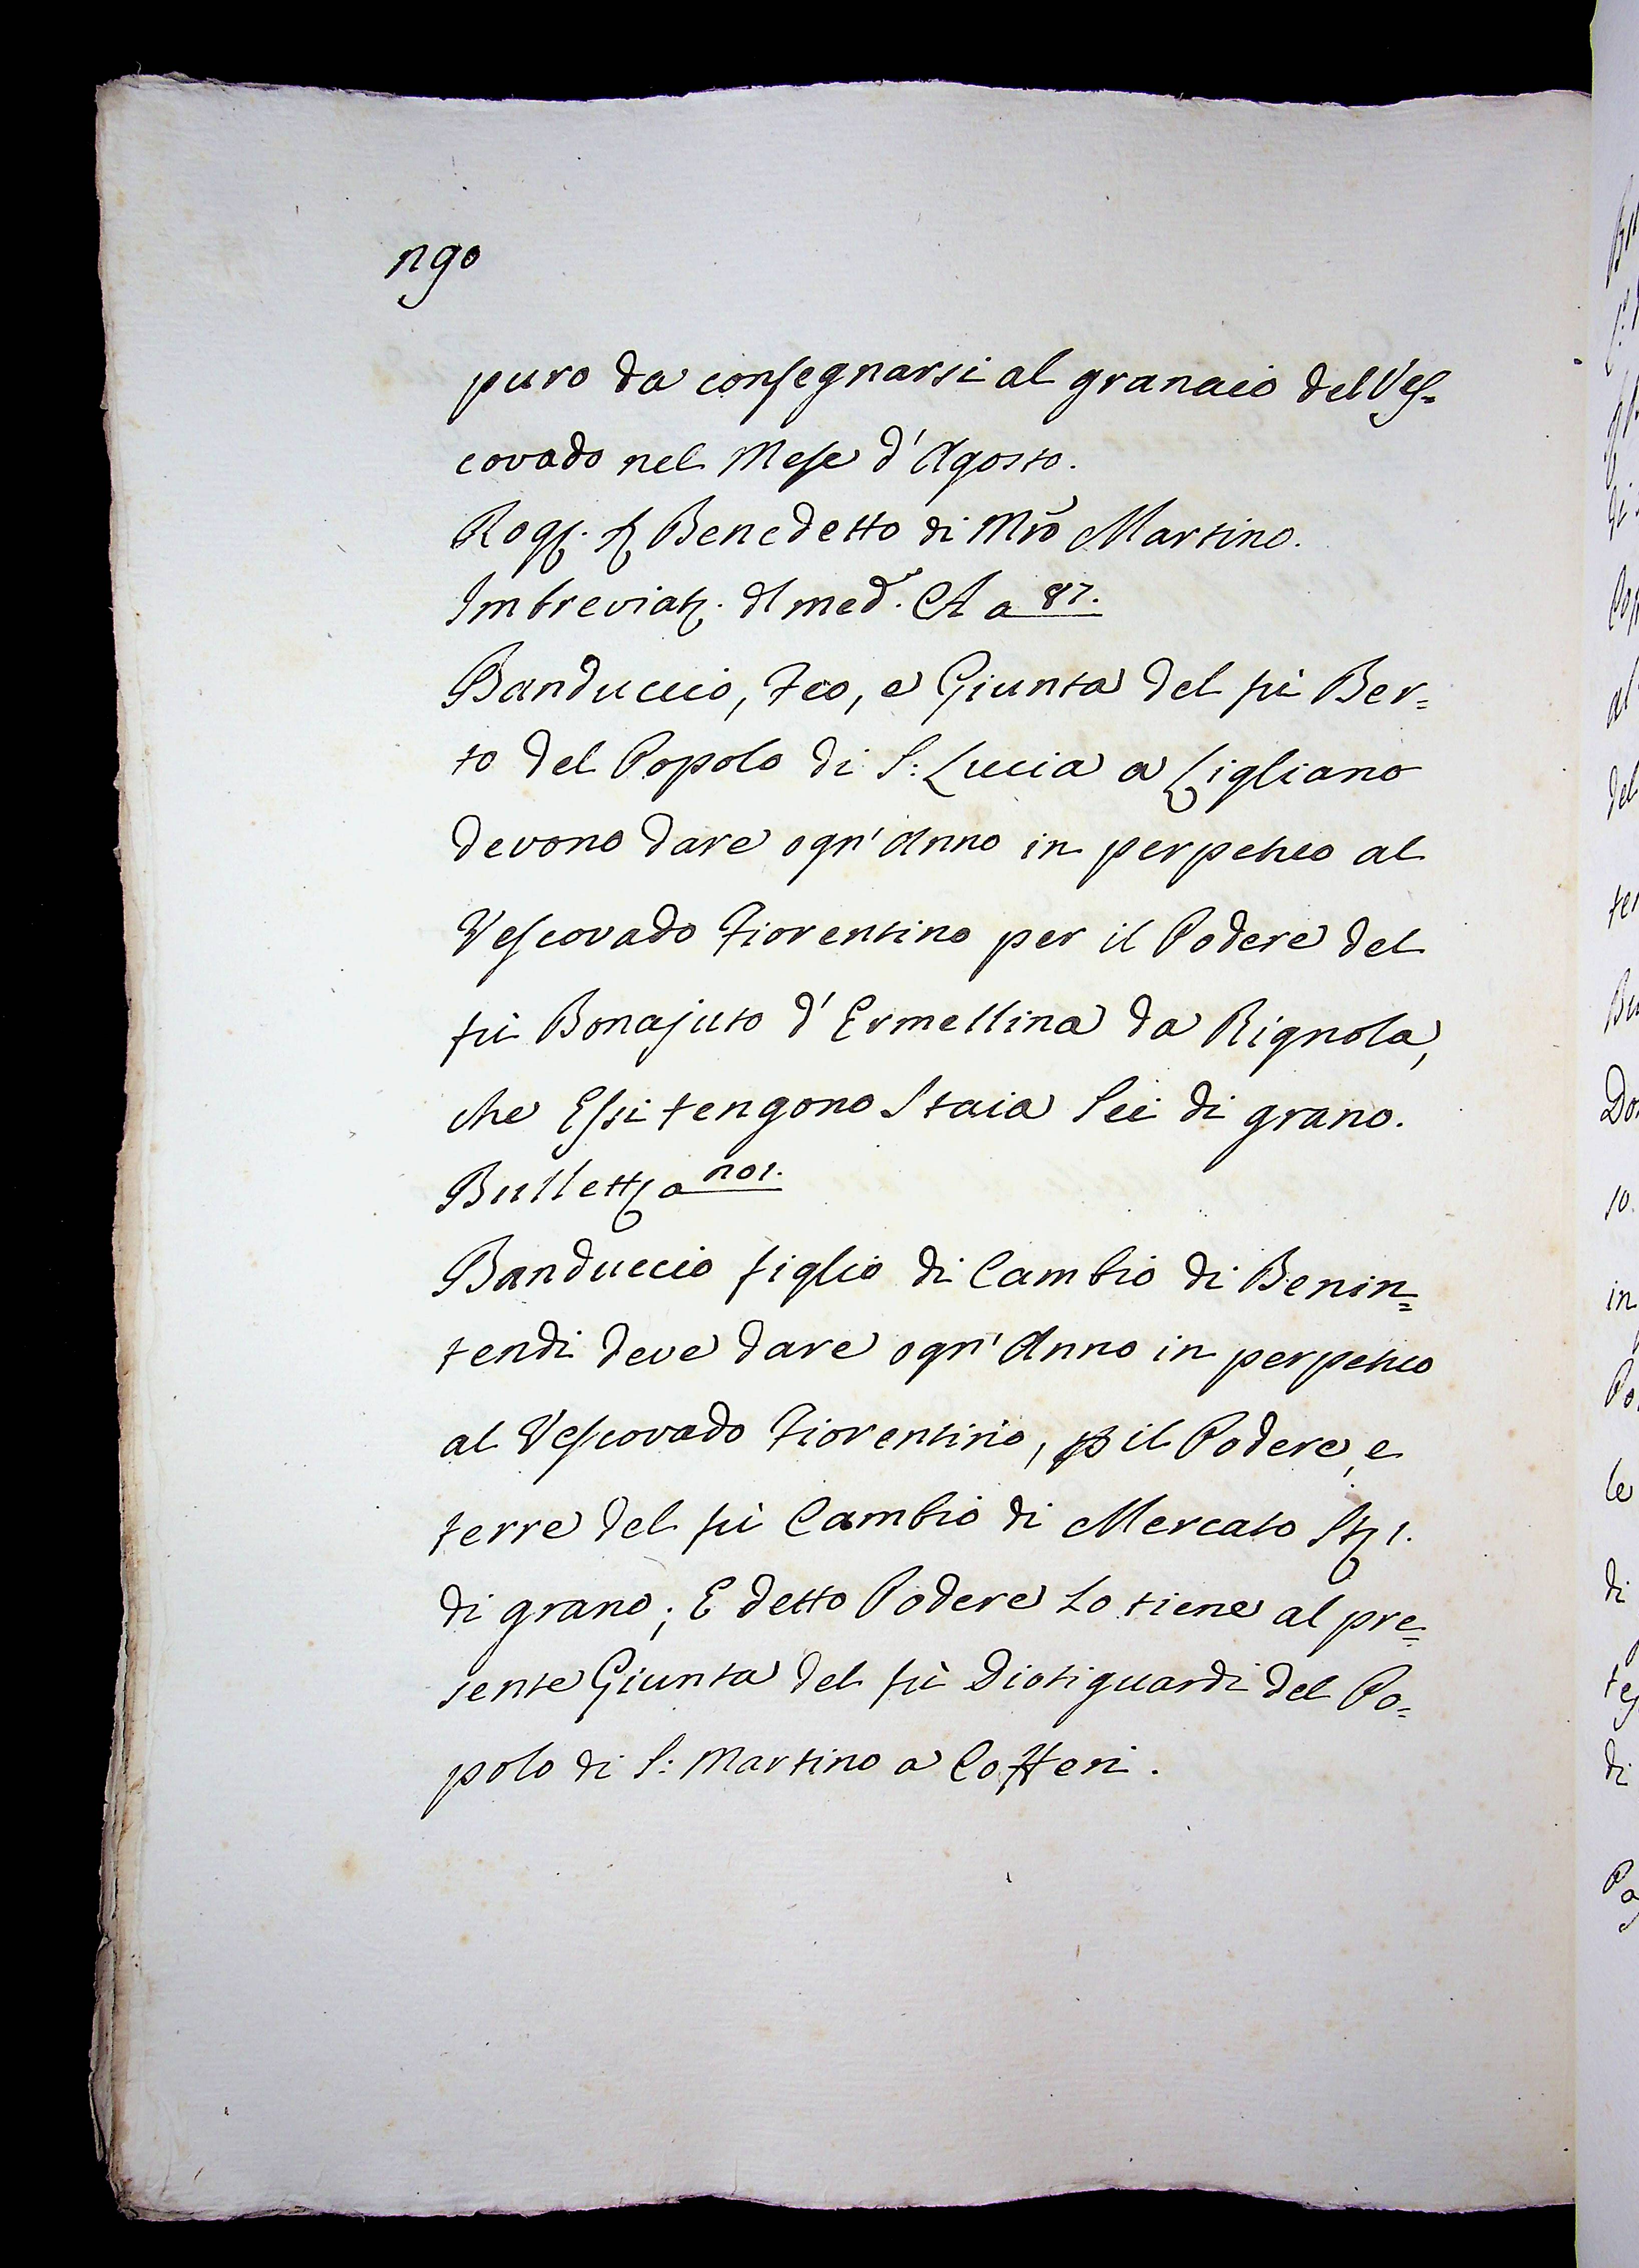 190
puro da consegnarsi al granaio del Ves=
covado nel Mese d'Agosto.
Rog. Benedetto di Mro Martino.
Imbreviaz. dl med. A a 87.
Banduccio, Feo, e Giunta del fù Ber=
to del Popolo di S: Lucia a Ligliano
devono dare ogn'Anno in perpetuo al
Vescovado Fiorentino per il Podere del
fù Bonajuto d'Ermellina da Rignola,
che Essi tengono Staia Sei di grano.
Bullett. a 101.
Banduccio figlio di Cambio di Benin=
tendi deve dare ogn'Anno in perpetuo
al Vescovado Fiorentino, p il Podere, e
terre del fù Cambio di Mercato St 1.
di grano; E detto Podere Lo tiene al pre=
sente Giunta del fù Diotiguardi del Po=
polo di S: Martino a Cofferi.